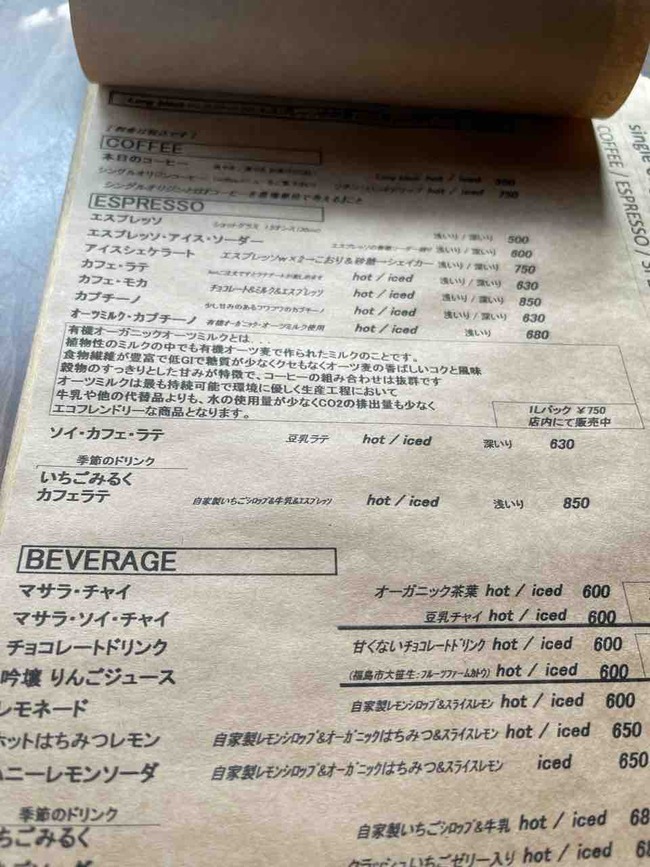 Long black
COFFEE
本日のコーヒー
Long black hot / iced 550
シングルオリジンコーヒー 750
ESPRESSO
エスプレッソ ショットグラス 浅いり / 深いり 500
エスプレッソ・アイス・ソーダー 浅いり / 深いり 600
アイスシェケラート エスプレッソW×2→こおり&砂糖→シェイカー 浅いり / 深いり 750
カフェ・ラテ hot / iced 浅いり / 深いり 630
カフェ・モカ チョコレート&ミルク&エスプレッソ hot / iced 浅いり / 深いり 850
カプチーノ 少し甘みのあるフワフワのカプチーノ hot / iced 浅いり / 深いり 630
オーツミルク・カプチーノ 有機オーガニック・オーツミルク使用 hot / iced 浅いり 680
有機オーガニックオーツミルクとは...
植物性のミルクの中でも有機オーツ麦で作られたミルクのことです。
食物繊維が豊富で低GIで糖質が少なくクセもなくオーツ麦の香ばしいコクと風味
穀物のすっきりとした甘みが特徴で、コーヒーの組み合わせは抜群です
オーツミルクは最も持続可能で環境に優しく生産工程において
牛乳や他の代替品よりも、水の使用量が少なくCO2の排出量も少なく
エコフレンドリーな商品となります。
1Lパック ¥750
店内にて販売中
ソイ・カフェ・ラテ 豆乳ラテ hot / iced 深いり 630
季節のドリンク
いちごみるく
カフェラテ 自家製いちごシロップ&牛乳&エスプレッソ hot / iced 浅いり 850
BEVERAGE
マサラ・チャイ オーガニック茶葉 hot / iced 600
マサラ・ソイ・チャイ 豆乳チャイ hot / iced 600
チョコレートドリンク 甘くないチョコレートドリンク hot / iced 600
吟壌 りんごジュース (福島市大笹生:フルーツファームカトウ) hot / iced 600
レモネード 自家製レモンシロップ&スライスレモン hot / iced 600
ホットはちみつレモン 自家製レモンシロップ&オーガニックはちみつ&スライスレモン hot / iced 650
ハニーレモンソーダ 自家製レモンシロップ&オーガニックはちみつ&スライスレモン iced 650
季節のドリンク
ちごみるく 自家製いちごシロップ&牛乳 hot / iced 68
クラッシュいちごゼリー入り hot / iced 68
single
COFFEE / ESPRESSO /